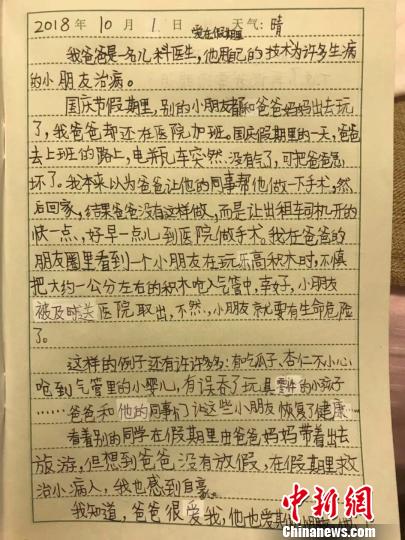 2018年10月1日 天气:晴
爱在假期里
我爸爸是一名儿科医生,他用自己的技术为许多生病
的小朋友治病。
国庆节假期里,别的小朋友都和爸爸妈妈出去玩
了,我爸爸却还在医院加班。国庆假期里的一天,爸爸
去上班的路上,电瓶瓦车突然没有气了,可把爸爸急
坏了。我本来以为爸爸让他的同事帮他做一下手术,然
后回家,结果爸爸没有这样做,而是让出租车司机开的
快一点,好早一点儿到医院做手术。我在爸爸的
朋友圈里看到一个小朋友在玩乐高积木时,不慎
把大约一公分左右的积木呛入气管中,幸好,小朋友
被及时送医院取出,不然,小朋友就要有生命危险
了。
这样的例子还有许许多多:有吃瓜子、杏仁不小心
呛到气管里的小婴儿,有误吞了玩具零件的小孩子
……爸爸和他的同事们让这些小朋友恢复了健康…
看着别的同学在假期里由爸爸妈妈带着出去
旅游,但想到爸爸没有放假,在假期里救
治小病人,我也感到自豪。
我知道,爸爸很爱我,他也爱
中新网